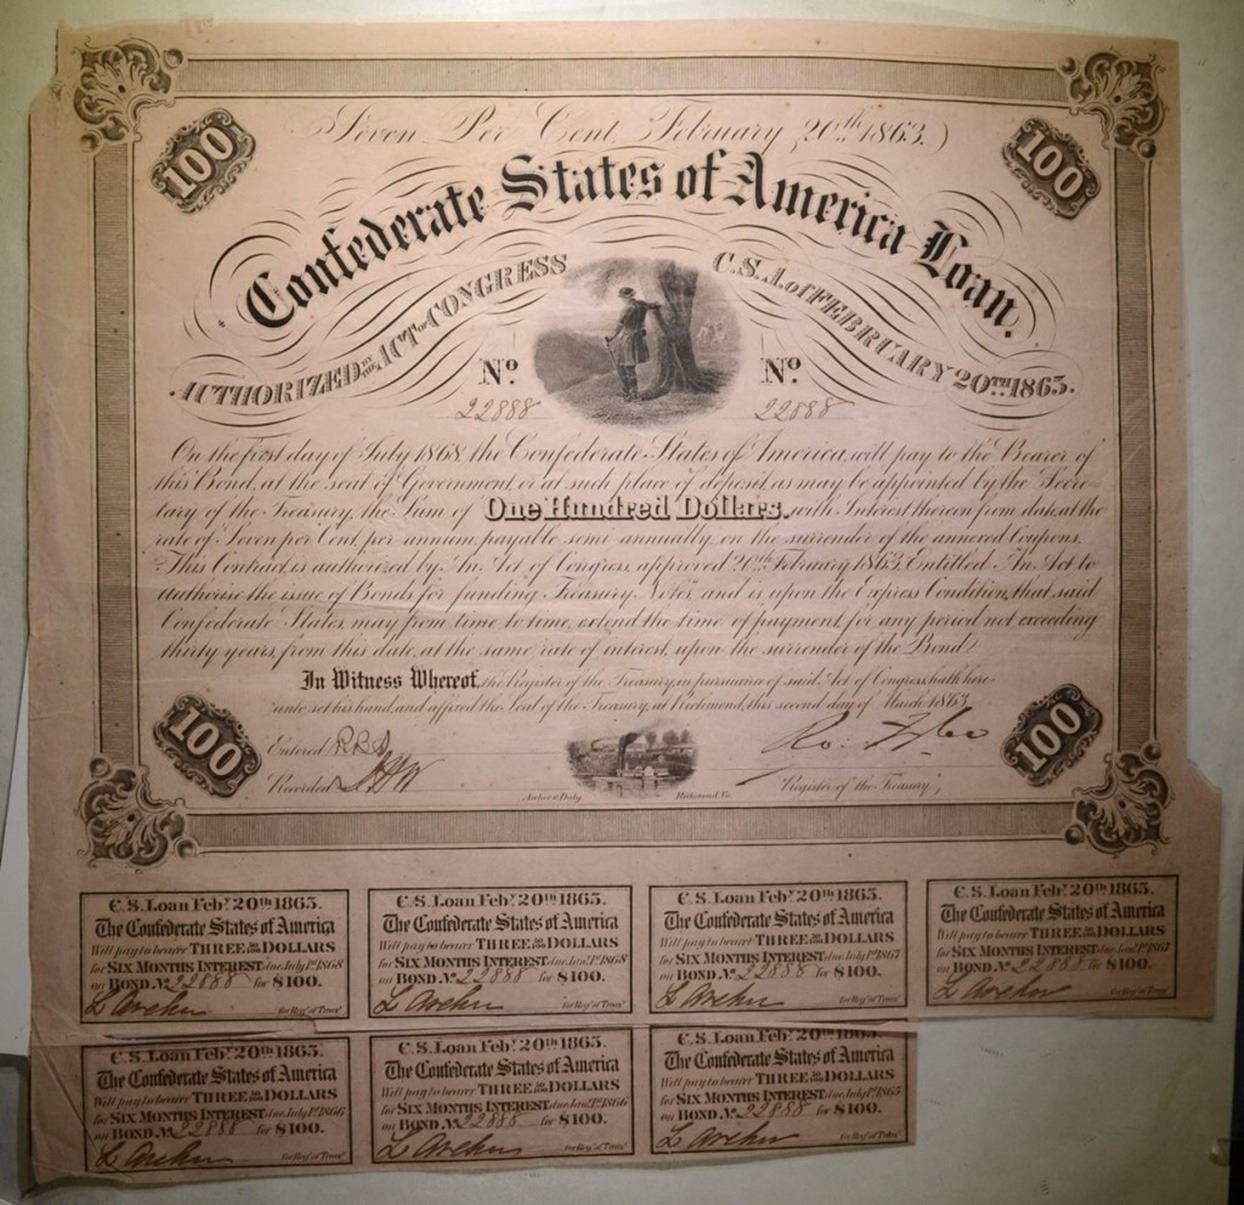 Seven Per Cent. February 20th 1863.
100
100
Confederate States of America Loan.
AUTHORIZED BY THE ACT OF CONGRESS C.S.A. of FEBRUARY 20TH 1863.
No. No.
22888 22888
On the first day of July 1868, the Confederate States of America, will pay to the Bearer of
this Bond, at the seat of Government, or at such place of deposit, as may be appointed by the Secre-
tary of the Treasury, the Sum of One Hundred Dollars, with Interest thereon from date, at the
rate of Seven per Cent, per annum, payable semi-annually, on the surrender of the annexed Coupons.
This Contract, is authorized by "An Act of Congress, approved 20th February 1863, Entitled "An Act to
authorise the issue of Bonds for funding Treasury Notes", and is upon the Express Condition, that said
Confederate States, may from time to time, extend the time of payment, for any period not exceeding
thirty years, from this date, at the same rate of interest, upon the surrender of the Bond.
In Witness Whereof, the Register of the Treasury, in pursuance of said Act of Congress, hath here-
unto set his hand, and affixed the Seal of the Treasury, at Richmond, this second day of March 1863.
100
100
Entered
Recorded
Ro: Tyler
Register of the Treasury,
Archer & Daly Richmond, Va.
C.S. Loan Feby. 20th 1863.
The Confederate States of America
Will pay to bearer THREE 50/100 DOLLARS
for SIX MONTHS INTEREST due July 1st 1868
on BOND No. 22888 for $100.
L Archer for Reg'r of Treas'
C.S. Loan Feby. 20th 1863.
The Confederate States of America
Will pay to bearer THREE 50/100 DOLLARS
for SIX MONTHS INTEREST due Jany. 1st 1868
on BOND No. 22888 for $100.
L Archer for Reg'r of Treas'
C.S. Loan Feby. 20th 1863.
The Confederate States of America
Will pay to bearer THREE 50/100 DOLLARS
for SIX MONTHS INTEREST due July 1st 1867
on BOND No. 22888 for $100.
L Archer for Reg'r of Treas'
C.S. Loan Feby. 20th 1863.
The Confederate States of America
Will pay to bearer THREE 50/100 DOLLARS
for SIX MONTHS INTEREST due Jany. 1st 1867
on BOND No. 22888 for $100.
L Archer for Reg'r of Treas'
C.S. Loan Feby. 20th 1863.
The Confederate States of America
Will pay to bearer THREE 50/100 DOLLARS
for SIX MONTHS INTEREST due July 1st 1866
on BOND No. 22888 for $100.
L Archer for Reg'r of Treas'
C.S. Loan Feby. 20th 1863.
The Confederate States of America
Will pay to bearer THREE 50/100 DOLLARS
for SIX MONTHS INTEREST due Jany. 1st 1866
on BOND No. 22888 for $100.
L Archer for Reg'r of Treas'
C.S. Loan Feby. 20th 1863.
The Confederate States of America
Will pay to bearer THREE 50/100 DOLLARS
for SIX MONTHS INTEREST due July 1st 1865
on BOND No. 22888 for $100.
L Archer for Reg'r of Treas'